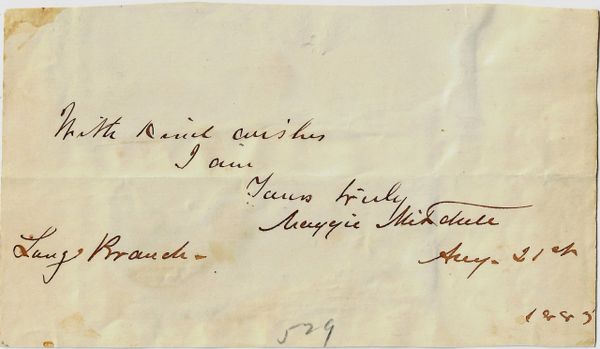 With kind wishes
I am
Yours truly
Maggie Mitchell
Long Branch-
Aug. 21st
1883
529